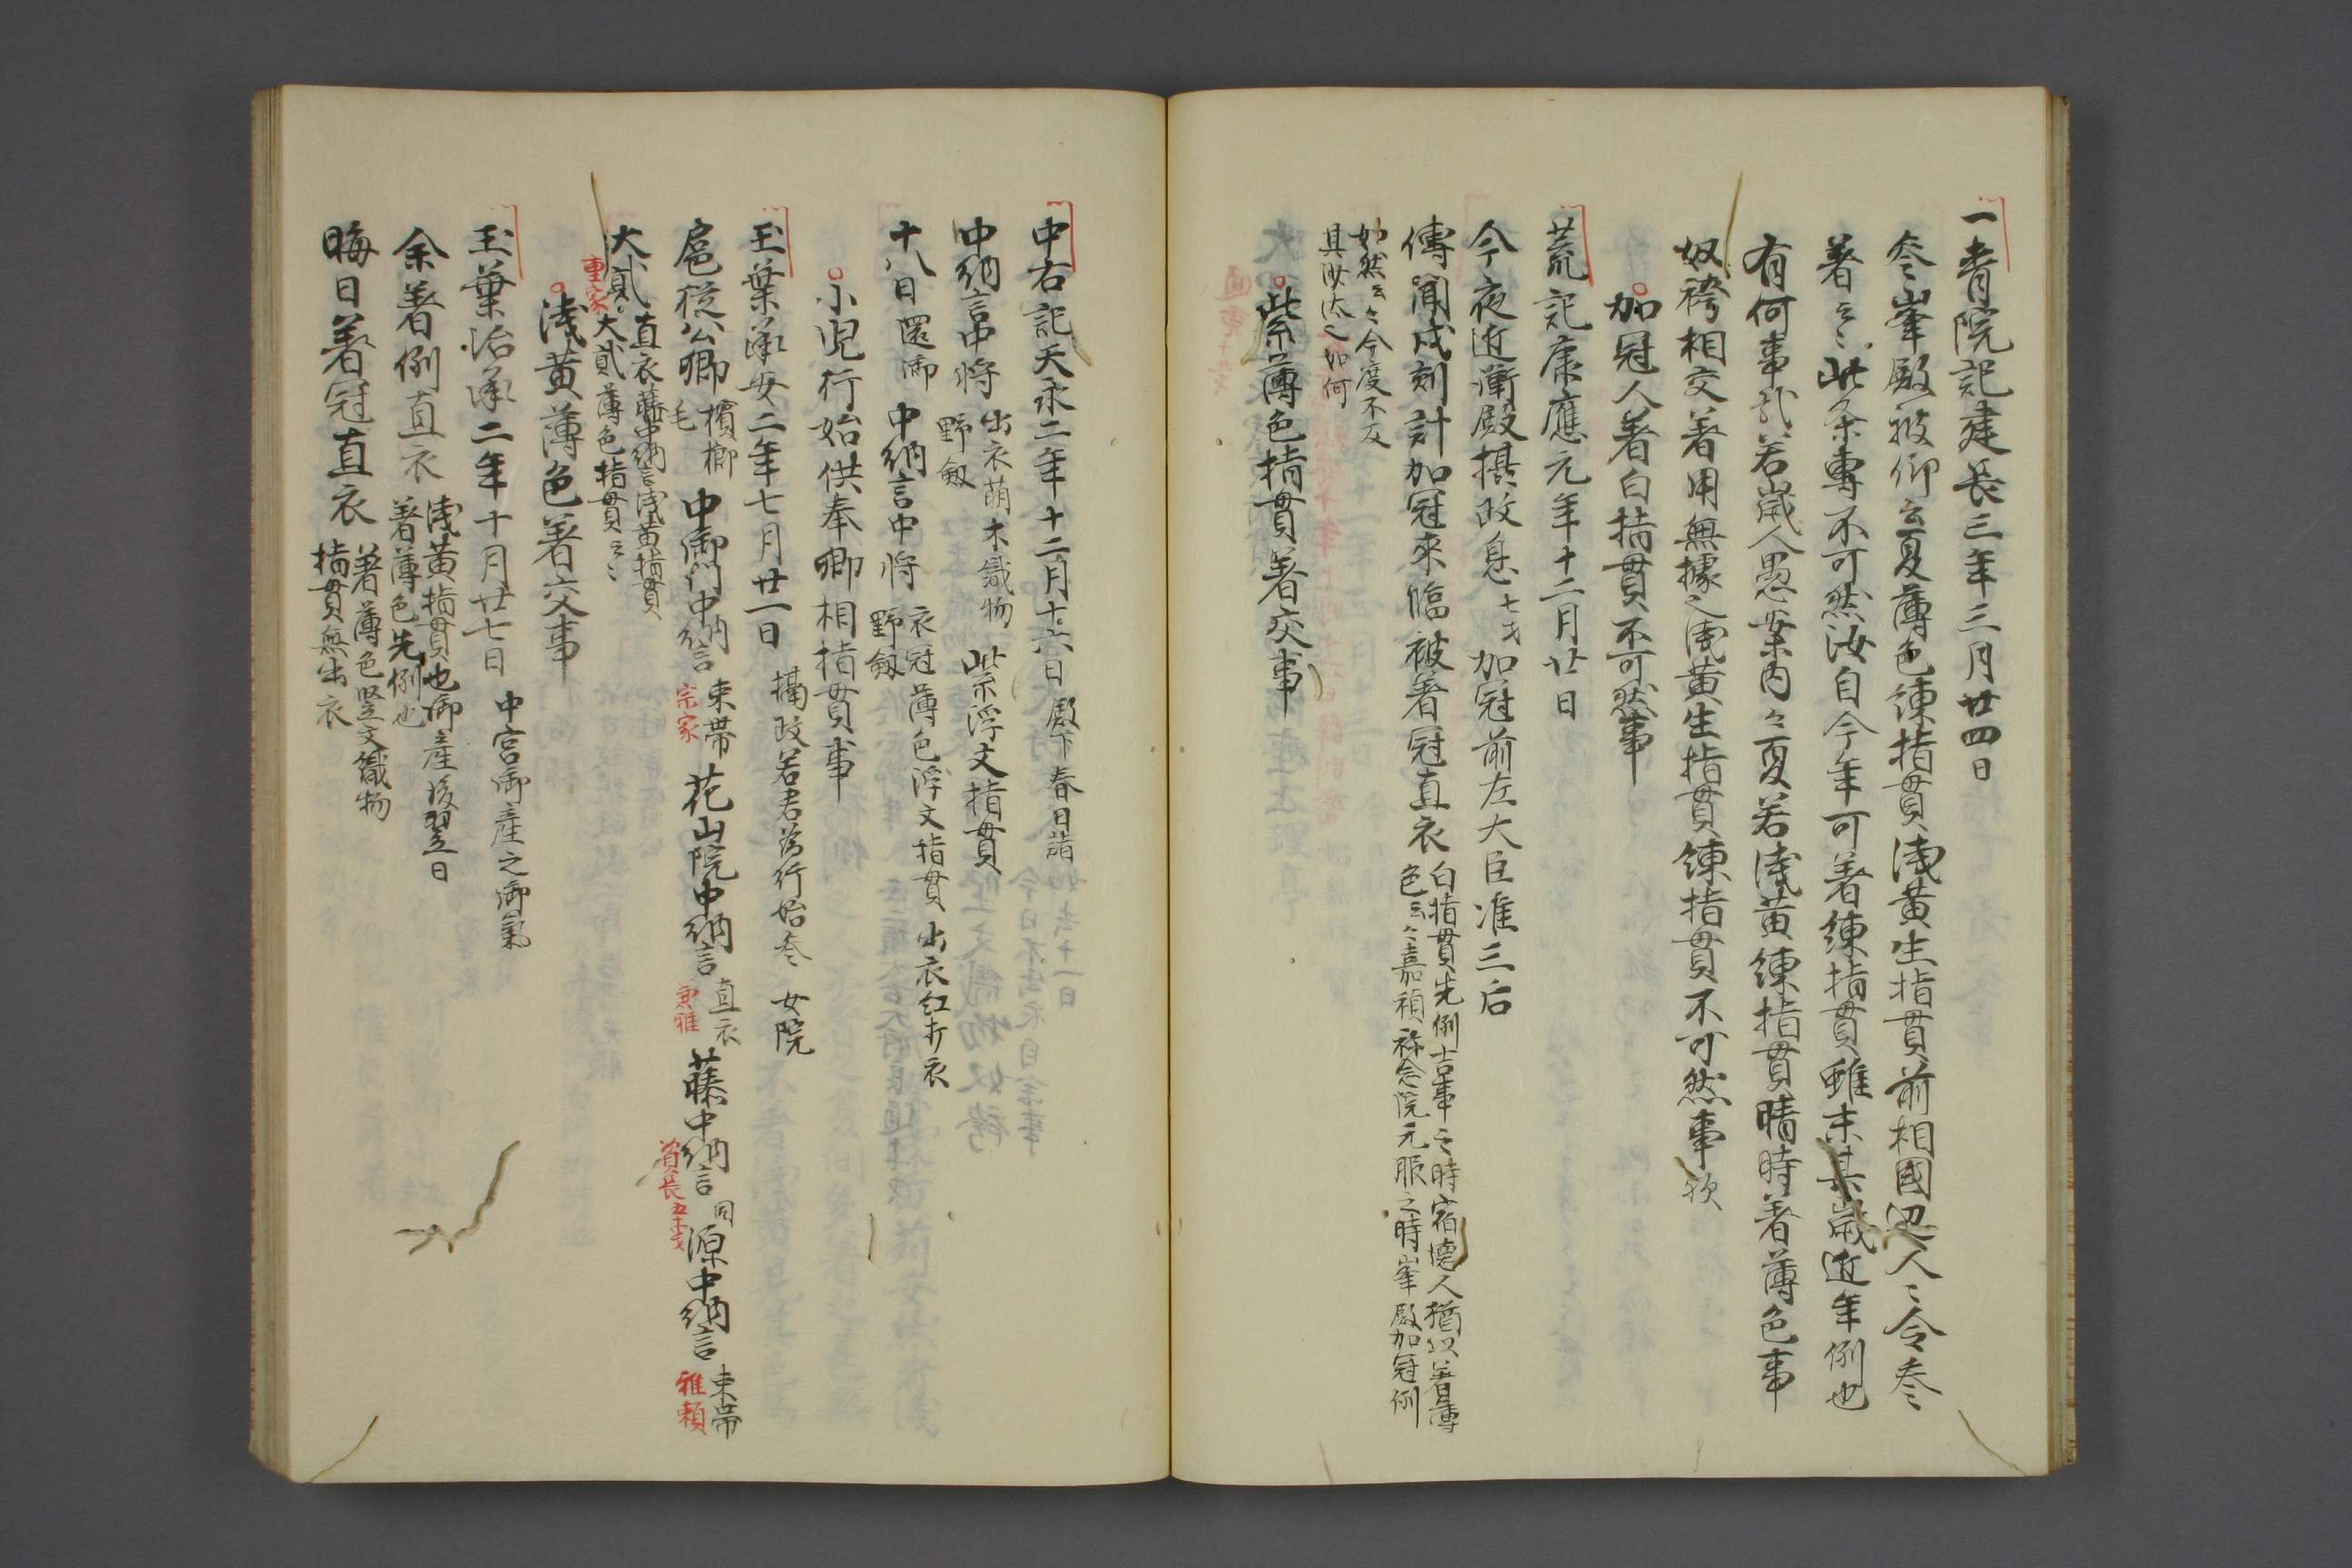 一青院記建長三年三月廿四日
参峯殿被仰云夏薄色練指貫浅黄生指貫前相國辺人〻令参
著云〻此条専不可然汝自今年可著練指貫雖未其歳近年例也
有何事哉若歳人愚案内々夏若浅黄練指貫晴時著薄色事
奴袴相交著用無據之浅黄生指貫練指貫不可然事欤
加冠人著白指貫不可然事
荒記康應元年十二月廿日
今夜近衛殿摂政息七才加冠前左大臣准三后
傳聞戌刻計加冠來臨被著冠直衣
白指貫先例吉事之時宿徳人猶以著薄
色云々嘉禎称念院元服之時峯殿加冠例
如然云々今度不及
其沙汰之如何
紫薄色指貫著交事
中右記天永二年十二月十六日殿下春日詣
中納言中将
出衣萌木織物
野剱
紫浮文指貫
十八日還御中納言中将
衣冠薄色浮文指貫出衣紅打衣
野剱
小児行始供奉卿相指貫事
玉葉承安二年七月廿一日
摂政若君為行始参女院
扈従公卿
檳榔
毛
中御門中納言
束帯
宗家
花山院中納言
直衣
兼雅
藤中納言
同
資長五十才
源中納言
束帯
雅頼
大貳
重家
直衣藤中納言浅黄指貫
大貳薄色指貫云〻
浅黄薄色著交事
玉葉治承二年十月廿七日
中宮御産之御氣
余著例直衣
浅黄指貫也御産後翌日
著薄色先例也
晦日著冠直衣
著薄色竪文織物
指貫無出衣